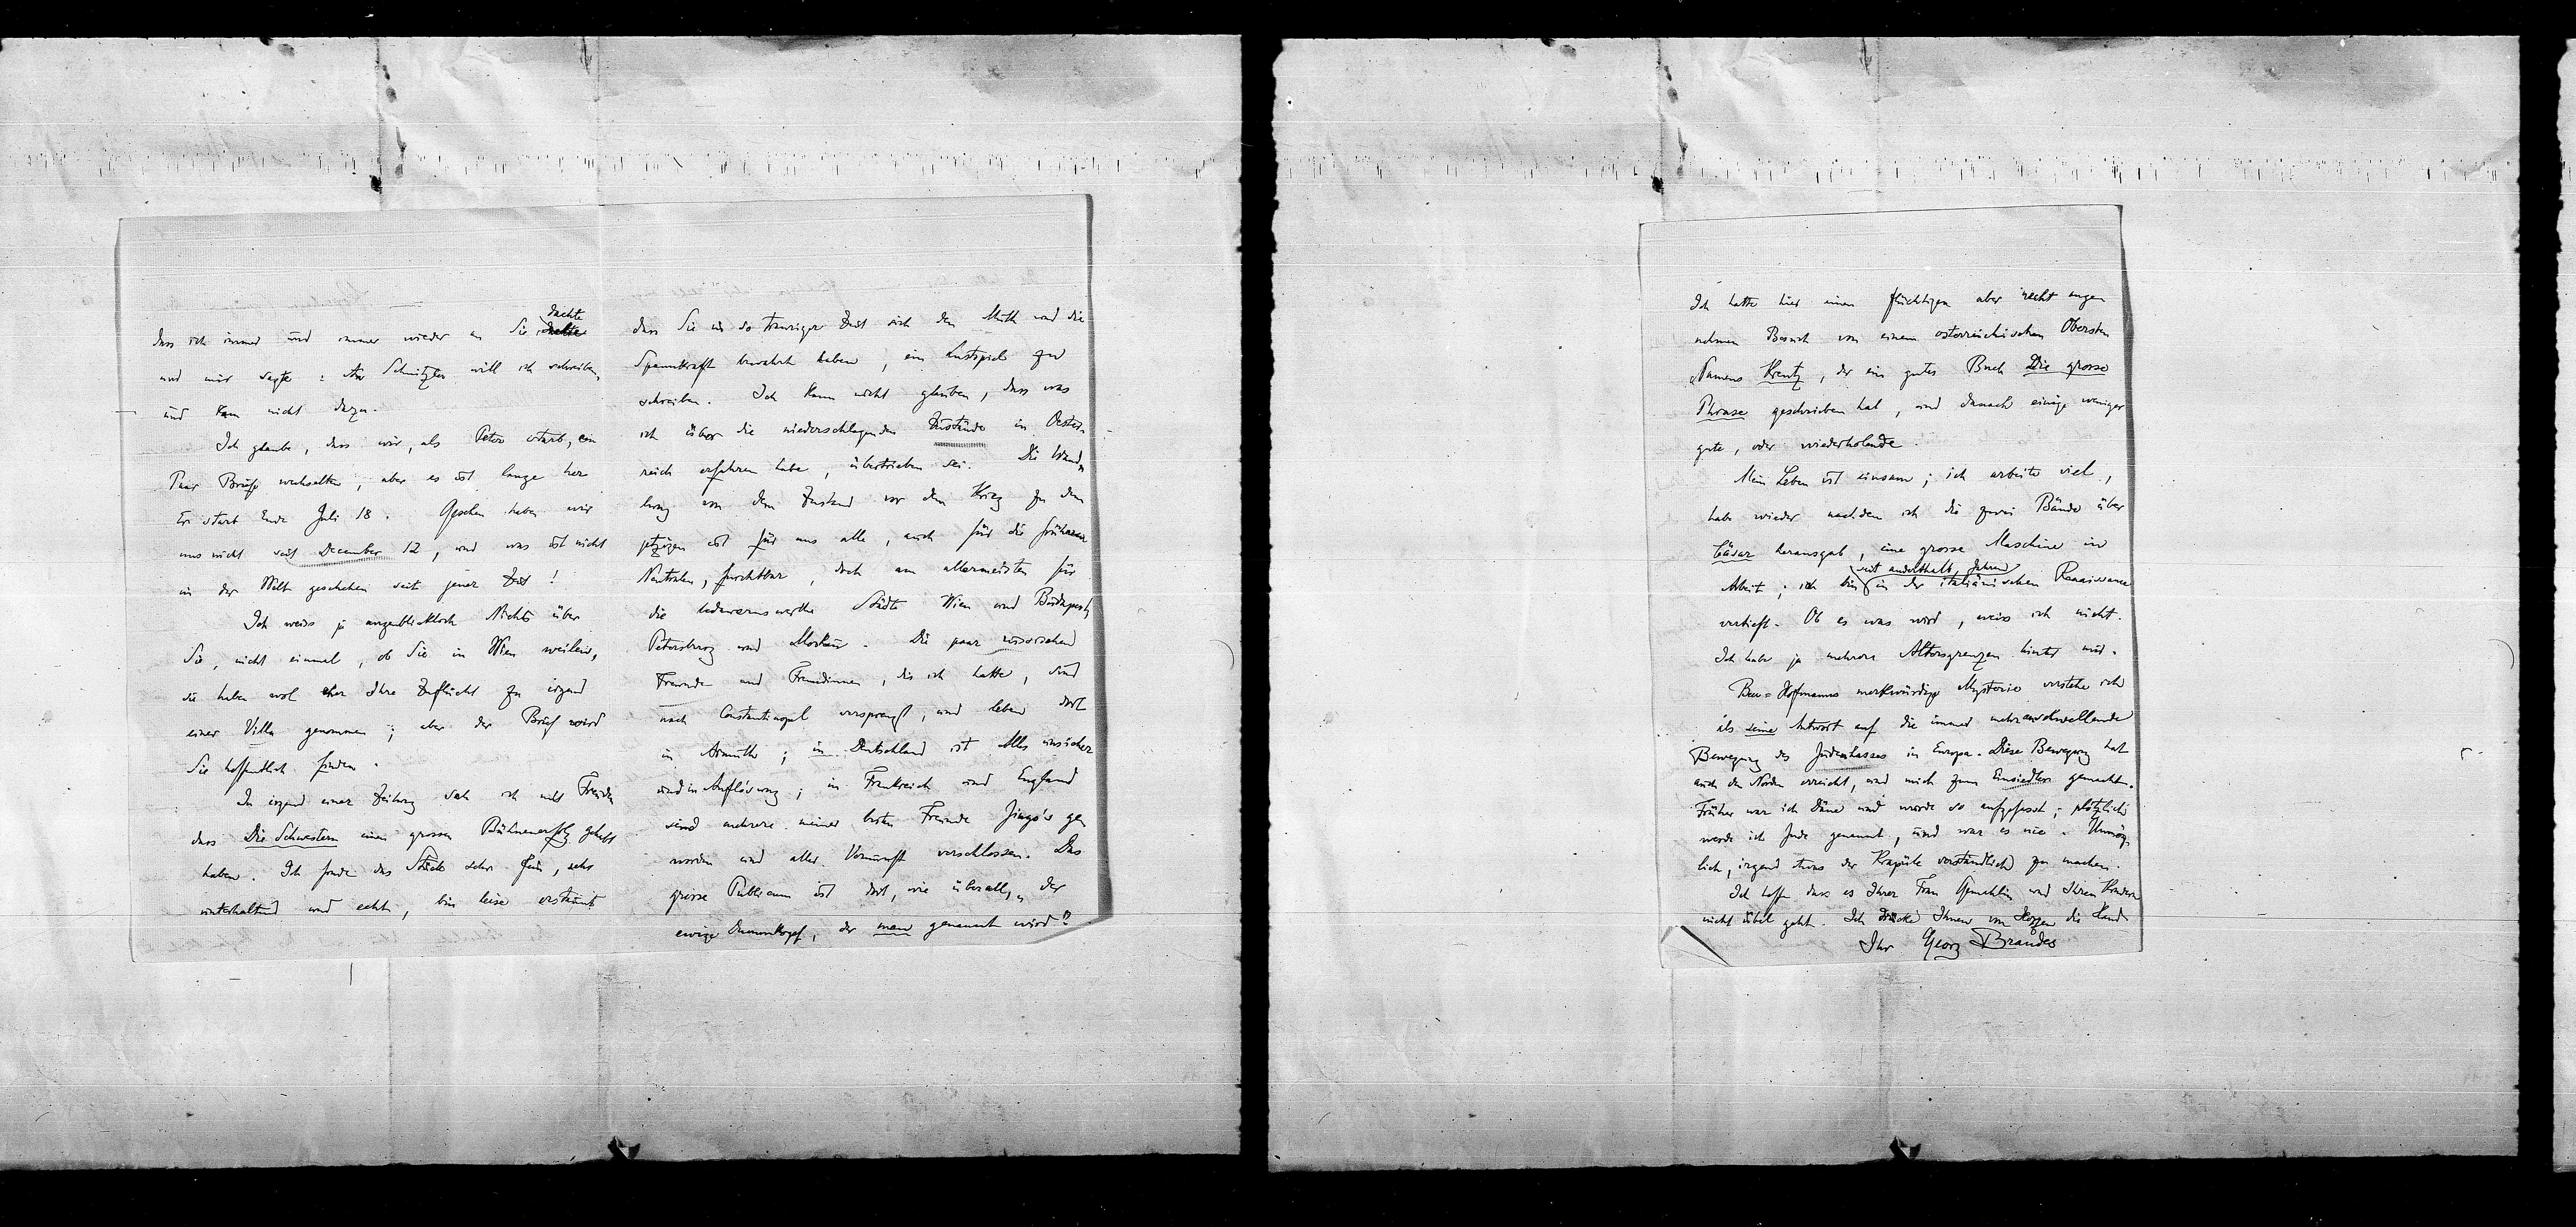 dass ich immer und immer wieder an Sie dachte
und mir sagte: An Schnitzler will ich schreiben,
und kam nicht dazu.
Ich glaube, dass wir, als Peter starb, ein
Paar Briefe wechselten; aber es ist lange her
Er starb Ende Juli 18. Gesehen haben wir
uns nicht seit December 12, und was ist nicht
in der Welt geschehen seit jener Zeit!
Ich weiss ja augenblicklich Nichts über
Sie, nicht einmal, ob Sie in Wien weilen,
Sie haben wol eher Ihre Zuflucht zu irgend
einer Villa genommen; aber der Brief wird
Sie hoffentlich finden.
In irgend einer Zeitung sah ich mit Freuden
dass Die Schwestern einen grossen Bühnenerfolg gehabt
haben. Ich finde das Stück sehr fein, sehr
unterhaltend und echt, bin leise erstaunt
dass Sie in so trauriger Zeit sich den Muth und die
Spannkraft bewahrt haben, ein Lustspiel zu
schreiben. Ich kann nicht glauben, dass was
ich über die niederschlagenden Zustände in Oester-
reich erfahren habe, übertrieben sei. Die Wand-
lung von dem Zustand vor dem Krieg zu dem
jetzigen ist für uns alle, auch für die früheren
Neutralen, furchtbar, doch am allermeisten für
die liebenswerthe Städte Wien und Budapest,
Petersburg und Moskau. Die paar russischen
Freunde und Freundinnen, die ich hatte, sind
nach Constantinopel versprengt, und leben dort
in Armuth; in Deutschland ist Alles unsicher
und in Auflösung; in Frankreich und England
sind mehrere meiner besten Freunde Jingo's ge-
worden und aller Vernunft verschlossen. Das
grosse Publicum ist dort, wie überall, „der
ewige Dummkopf, der man genannt wird“.
Ich hatte hier einen flüchtigen aber recht ange
nehmen Besuch von einem österreichischen Obersten
Namens Kreutz, der ein gutes Buch Die grosse
Phrase geschrieben hat, und danach einige weniger
gute, oder wiederholende.
Mein Leben ist einsam; ich arbeite viel,
habe wieder nachdem ich die zwei Bände über
Cäsar herausgab, eine grosse Maschine in
Arbeit; ich bin seit anderthalb Jahren in der italiänischen Renaissance
vertieft. Ob es was wird, weiss ich nicht.
Ich habe ja mehrere Altersgrenzen hinter mir.
Beer-Hoffmanns merkwürdige Mysterie verstehe ich
als seine Antwort auf die immer mehr anschwellende
Bewegung des Judenhasses in Europa. Diese Bewegung hat
auch den Norden erreicht, und mich zum Einsiedler gemacht.
Früher war ich Däne und wurde so aufgefasst; plötzlich
werde ich Jude genannt, und war es nie. Unmög-
lich, irgend etwas der Krapüle verständlich zu machen.
Ich hoffe dass es Ihrer Frau Gemahlin und Ihren Kindern
nicht übel geht. Ich drücke Ihnen von Herzen die Hand
Ihr Georg Brandes